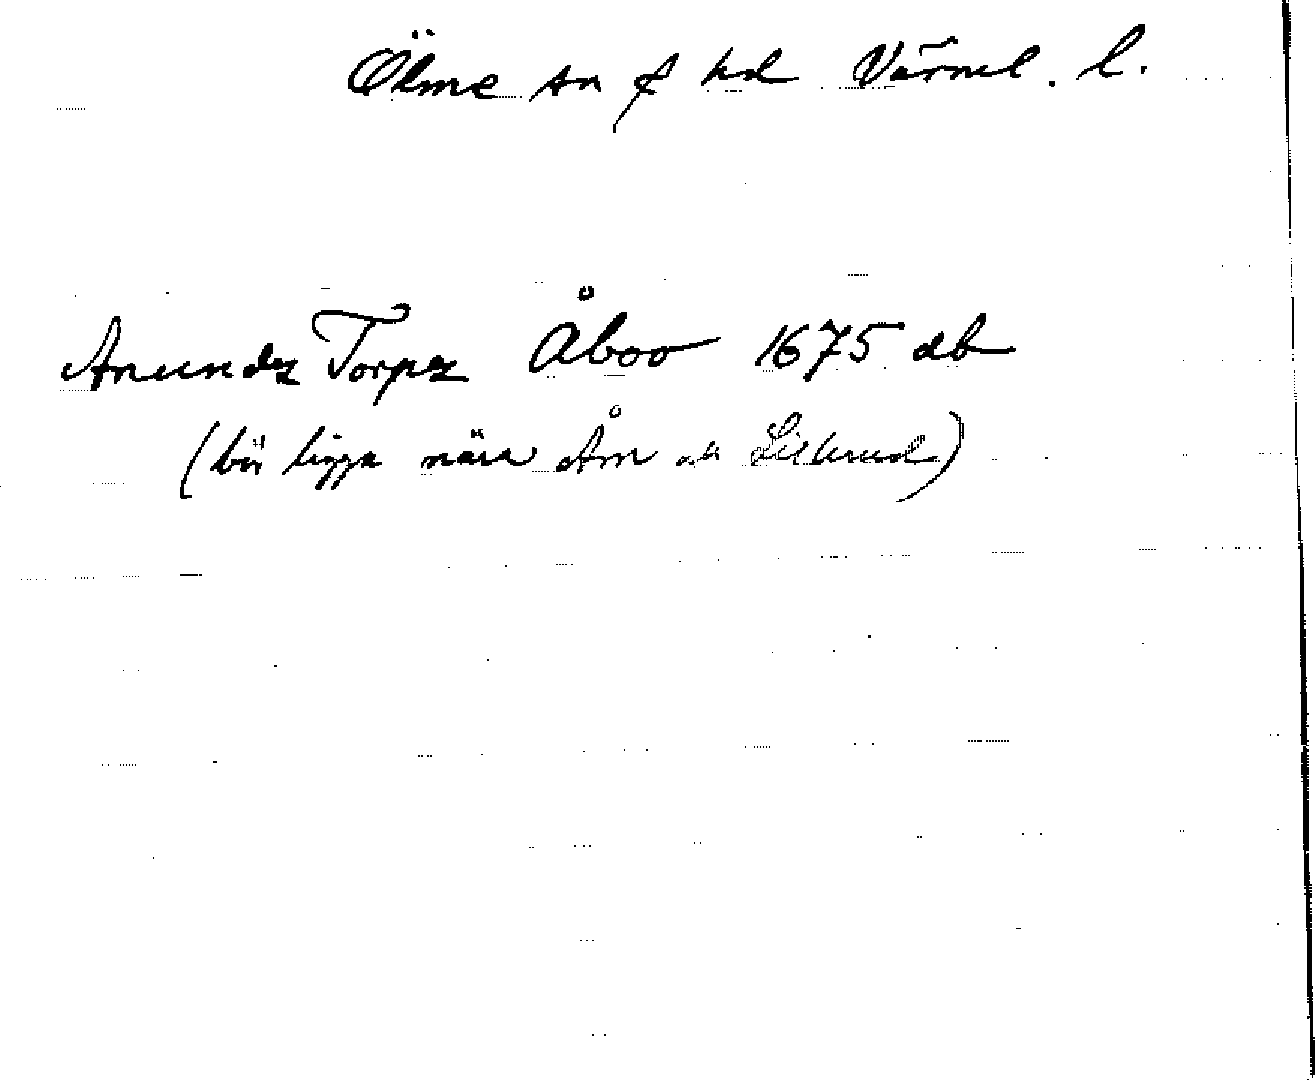 Ölme sn f hd Värml. l.
Anundz Torpz Åboo 1675 db
(bör ligga nära Åm och)